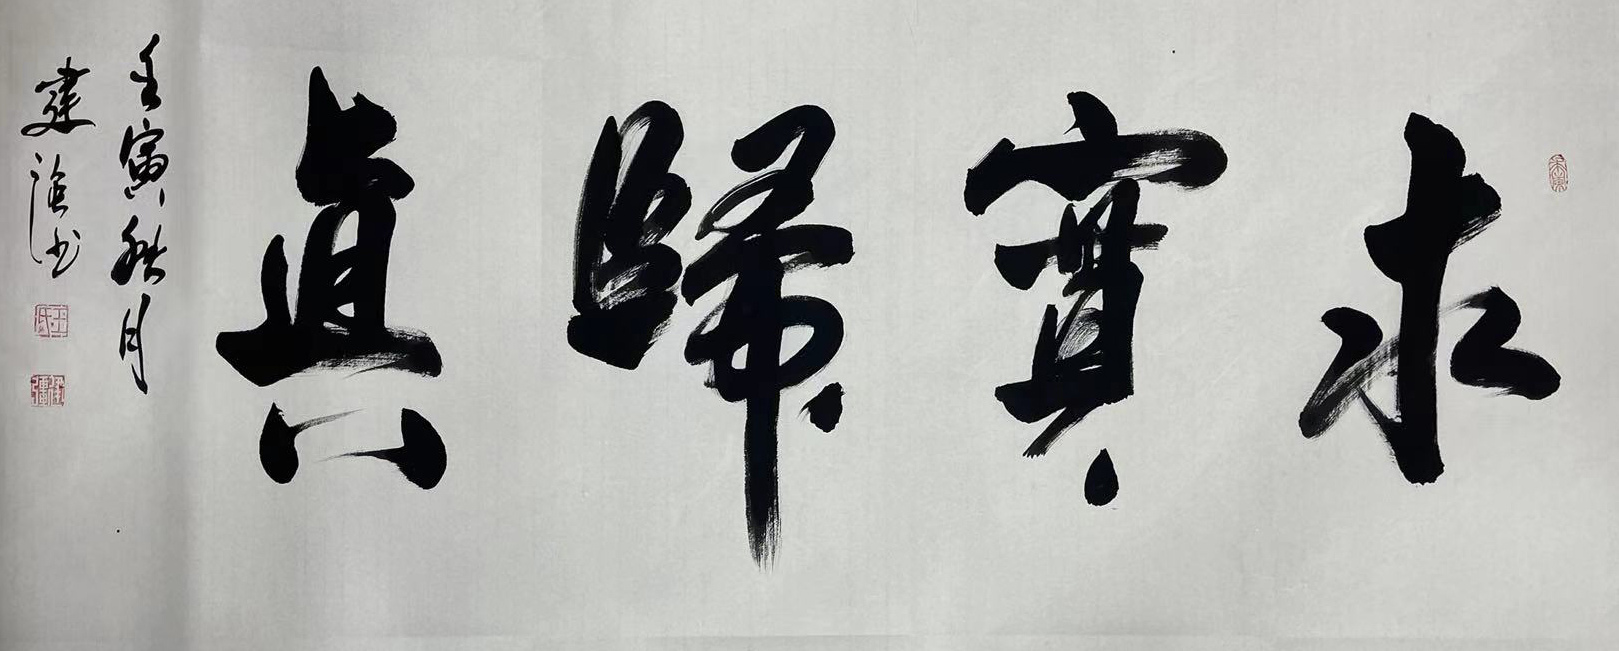 求實歸真
壬寅秋月
建強书